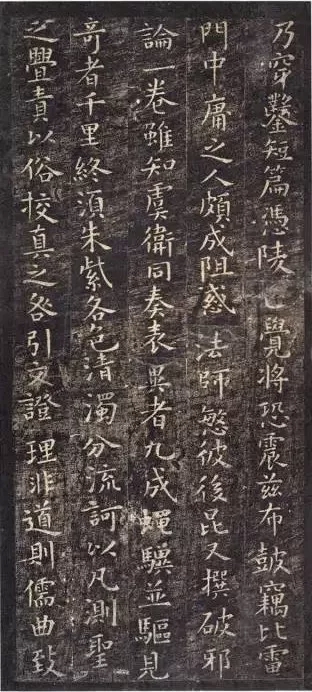 乃穿鑿短篇憑陵覺將恐震兹布鼓竊比雷
門中庸之人頗成阻惑法師愍彼後昆又撰破邪
論一卷雖知虞衛同奏表異者九成蠅驥並驅見
奇者千里終湏朱紫各色清濁分流訶以凡測聖
之舋責以俗挍真之咎引文證理非道則儒曲致